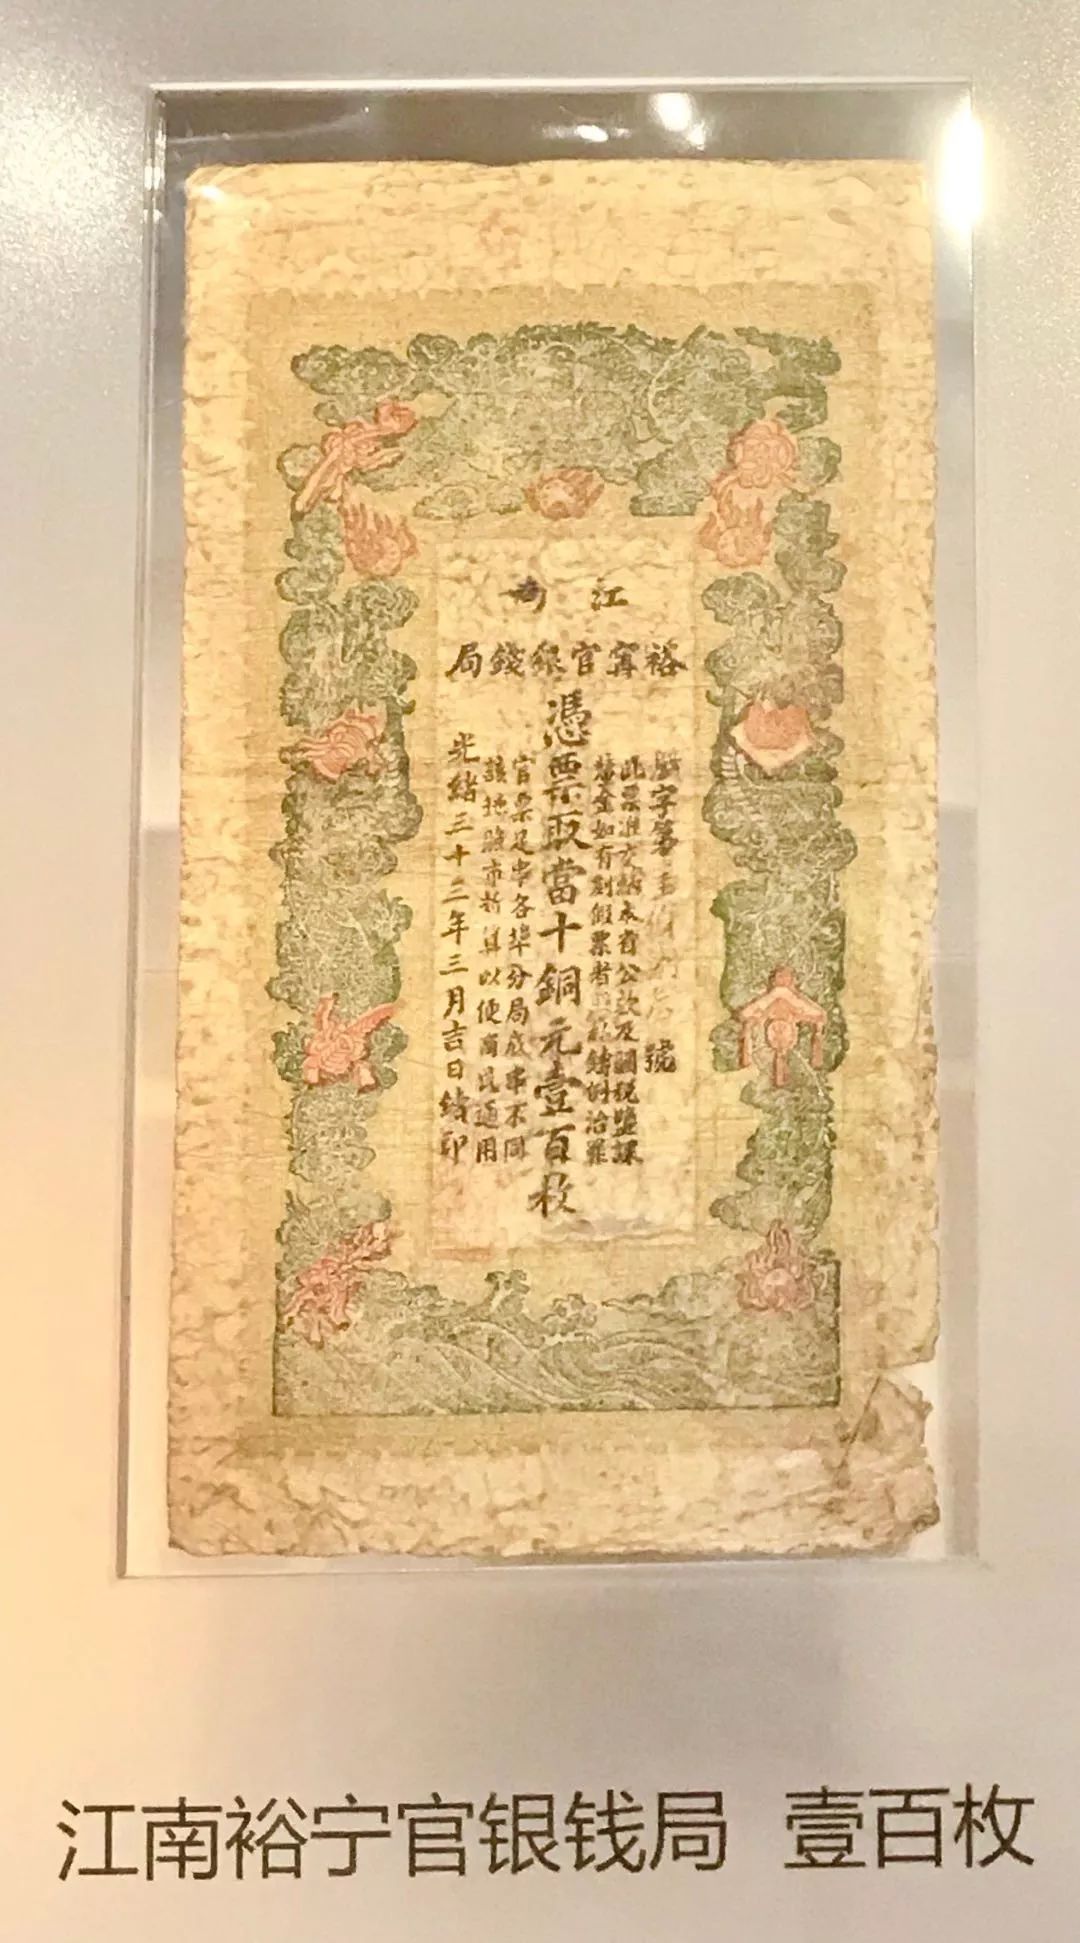 江南
裕寧官銀錢局
字第 號
此票准交納本省公款及關税鹽課
釐金如有刻假票者 私鑄例治罪
憑票取當十銅元壹百枚
官票足串各埠分局底串不同
該地照市折算以便商民通用
光緒三十三年三月吉日 印
江南裕宁官银钱局 壹百枚